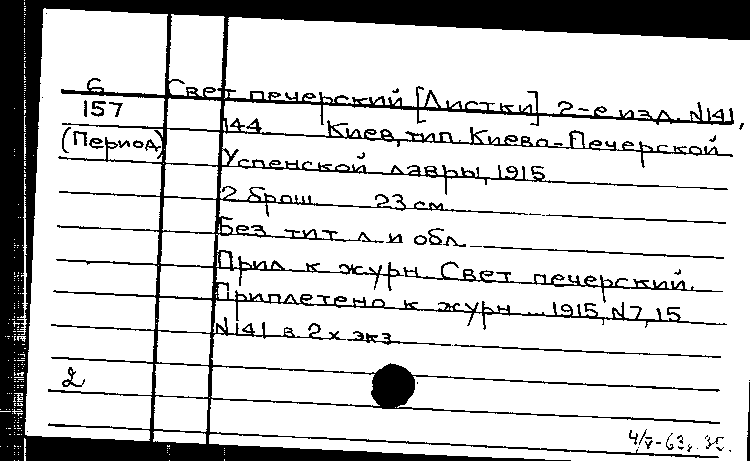 6 Свет печерский [Листки] 2-е изд. N141,
157 144. Киев, тип. Киево-Печерской
(Период) Успенской лавры, 1915
2 брош. 23 см.
Без тит. л. и обл.
Прил. к журн. Свет печерский.
Приплетено к журн. ... 1915, N7, 15
N141 в 2х экз.
2